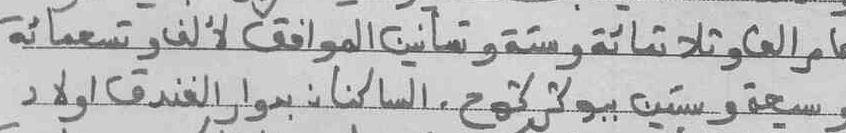 عام الف وثلاثمائة وستة وثمانين الموافق لألف وتسعمائة
وسبعة وستين ببوكركوح. الساكنان بدوار الفندق اولاد